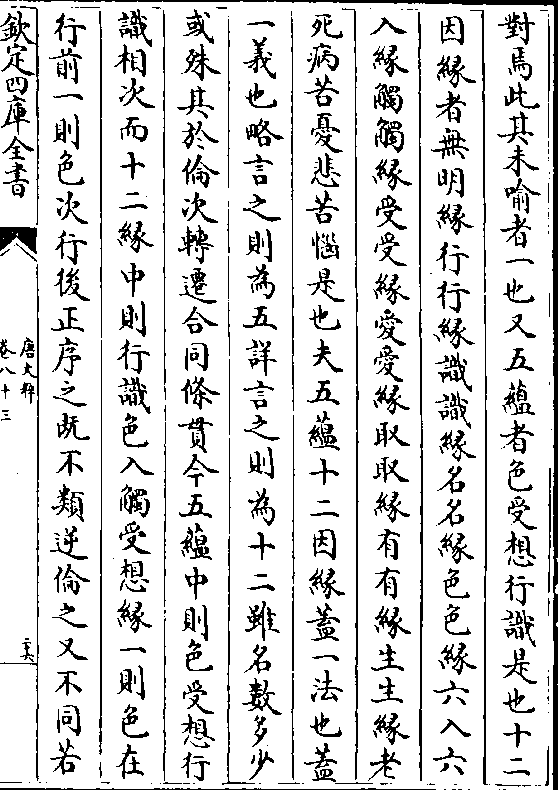 對焉此其未喻者一也又五蘊者色受想行識是也十二
因緣者無明緣行行緣識識緣名名緣色色緣六入六
入緣觸觸緣受受緣愛愛緣取取緣有有緣生生緣老
死病苦憂悲苦惱是也夫五蘊十二因緣蓋一法也蓋
一義也略言之則為五詳言之則為十二雖名數多少
或殊其於倫次轉遷合同條貫今五蘊中則色受想行
識相次而十二緣中則行識色入觸受想緣一則色在
行前一則色次行後正序之既不類逆倫之又不同若
欽定四庫全書
唐文粹
卷八十三